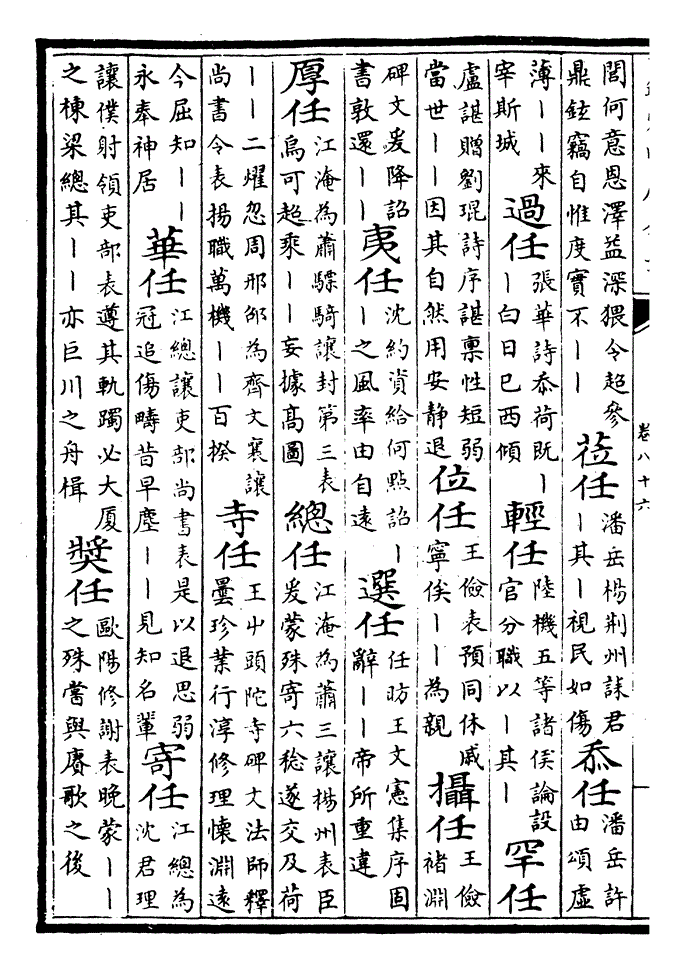 閭何意恩澤益深猥令超參
鼎鉉竊自惟度實不丨丨
莅任
潘岳楊荆州誄君
丨其丨視民如傷
忝任
潘岳許
由頌虚
薄丨丨來
宰斯城
過任
張華詩忝荷既丨
丨白日已西傾
輕任
陸機五等諸侯論設
官分職以丨其丨
罕任
盧諶贈劉琨詩序諶禀性短弱
當世丨丨因其自然用安静退
位任
王儉表預同休戚
寧俟丨丨為親
攝任
王儉
褚淵
碑文爰降詔
書敦還丨丨
夷任
沈約資給何點詔丨
丨之風率由自遠
選任
任昉王文憲集序固
辭丨丨帝所重違
厚任
江淹為蕭驃騎讓封第三表
烏可超乘丨丨妄據高圖
總任
江淹為蕭三讓楊州表臣
爰蒙殊寄六稔遂交及荷
丨丨二耀忽周邢邵為齊文襄讓
尚書令表揚職萬機丨丨百揆
寺任
王屮頭陀寺碑文法師釋
曇珍業行淳修理懷淵遠
今屈知丨丨
永奉神居
華任
江總讓吏部尚書表是以退思弱
冠追傷疇昔早塵丨丨見知名輩
寄任
江總為
沈君理
讓僕射領吏部表遵其軌躅必大厦
之棟梁總其丨丨亦巨川之舟楫
奬任
歐陽修謝表晚蒙丨丨
之殊嘗與賡歌之後
卷八十六